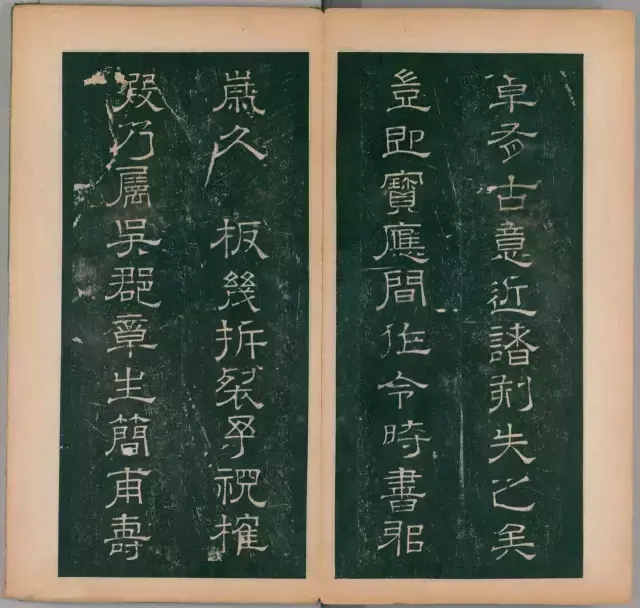 卓有古意近諸刻失之矣
豈即寶應間作令時書耶
歲久 板幾拆裂予視榷
暇乃屬吳郡章生簡甫壽